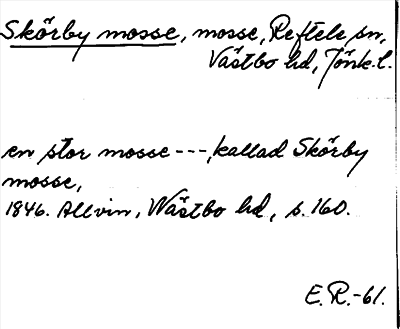 Skörby mosse, mosse, Reftele sn,
Västbo hd, Jönk.l.
en stor mosse ---, kallad Skörby
mosse,
1846. Allvin, Wästbo hd, s. 160.
E.R.-61.